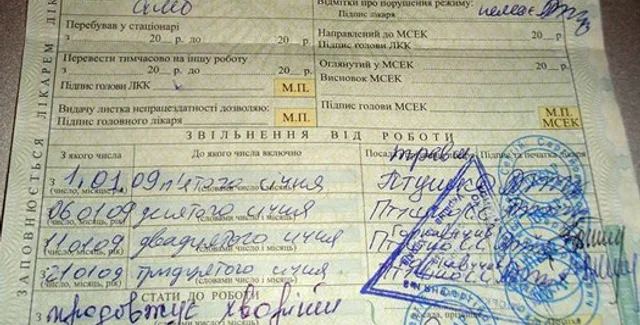 Відмітки про порушення режиму:
Підпис лікаря немає
Перебував у стаціонарі
з 20 р. до 20 р.
Направлений до МСЕК 20 р.
Підпис голови ЛКК
Перевести тимчасово на іншу роботу
з 20 р. до 20 р.
Підпис голови ЛКК М.П.
Оглянутий у МСЕК 20 р.
Висновок МСЕК
Видачу листка непрацездатності дозволяю:
Підпис головного лікаря М.П.
Підпис голови МСЕК М.П.
МСЕК
ЗАПОВНЮЄТЬСЯ ЛІКАРЕМ
ЗВІЛЬНЕННЯ ВІД РОБОТИ
З якого числа До якого числа включно Посада Підпис та печатка лікаря
травм
З 1.01.09 п'ятого січня
(число, місяць, рік) (словами число і місяць)
06 01 09 десятого січня
(число, місяць, рік) (словами число і місяць)
11 01 09 двадцятого січня
(число, місяць, рік) (словами число і місяць)
З 21 01 09 тридцятого січня
(число, місяць, рік) (словами число і місяць)
СТАТИ ДО РОБОТИ
продовжує хворіти